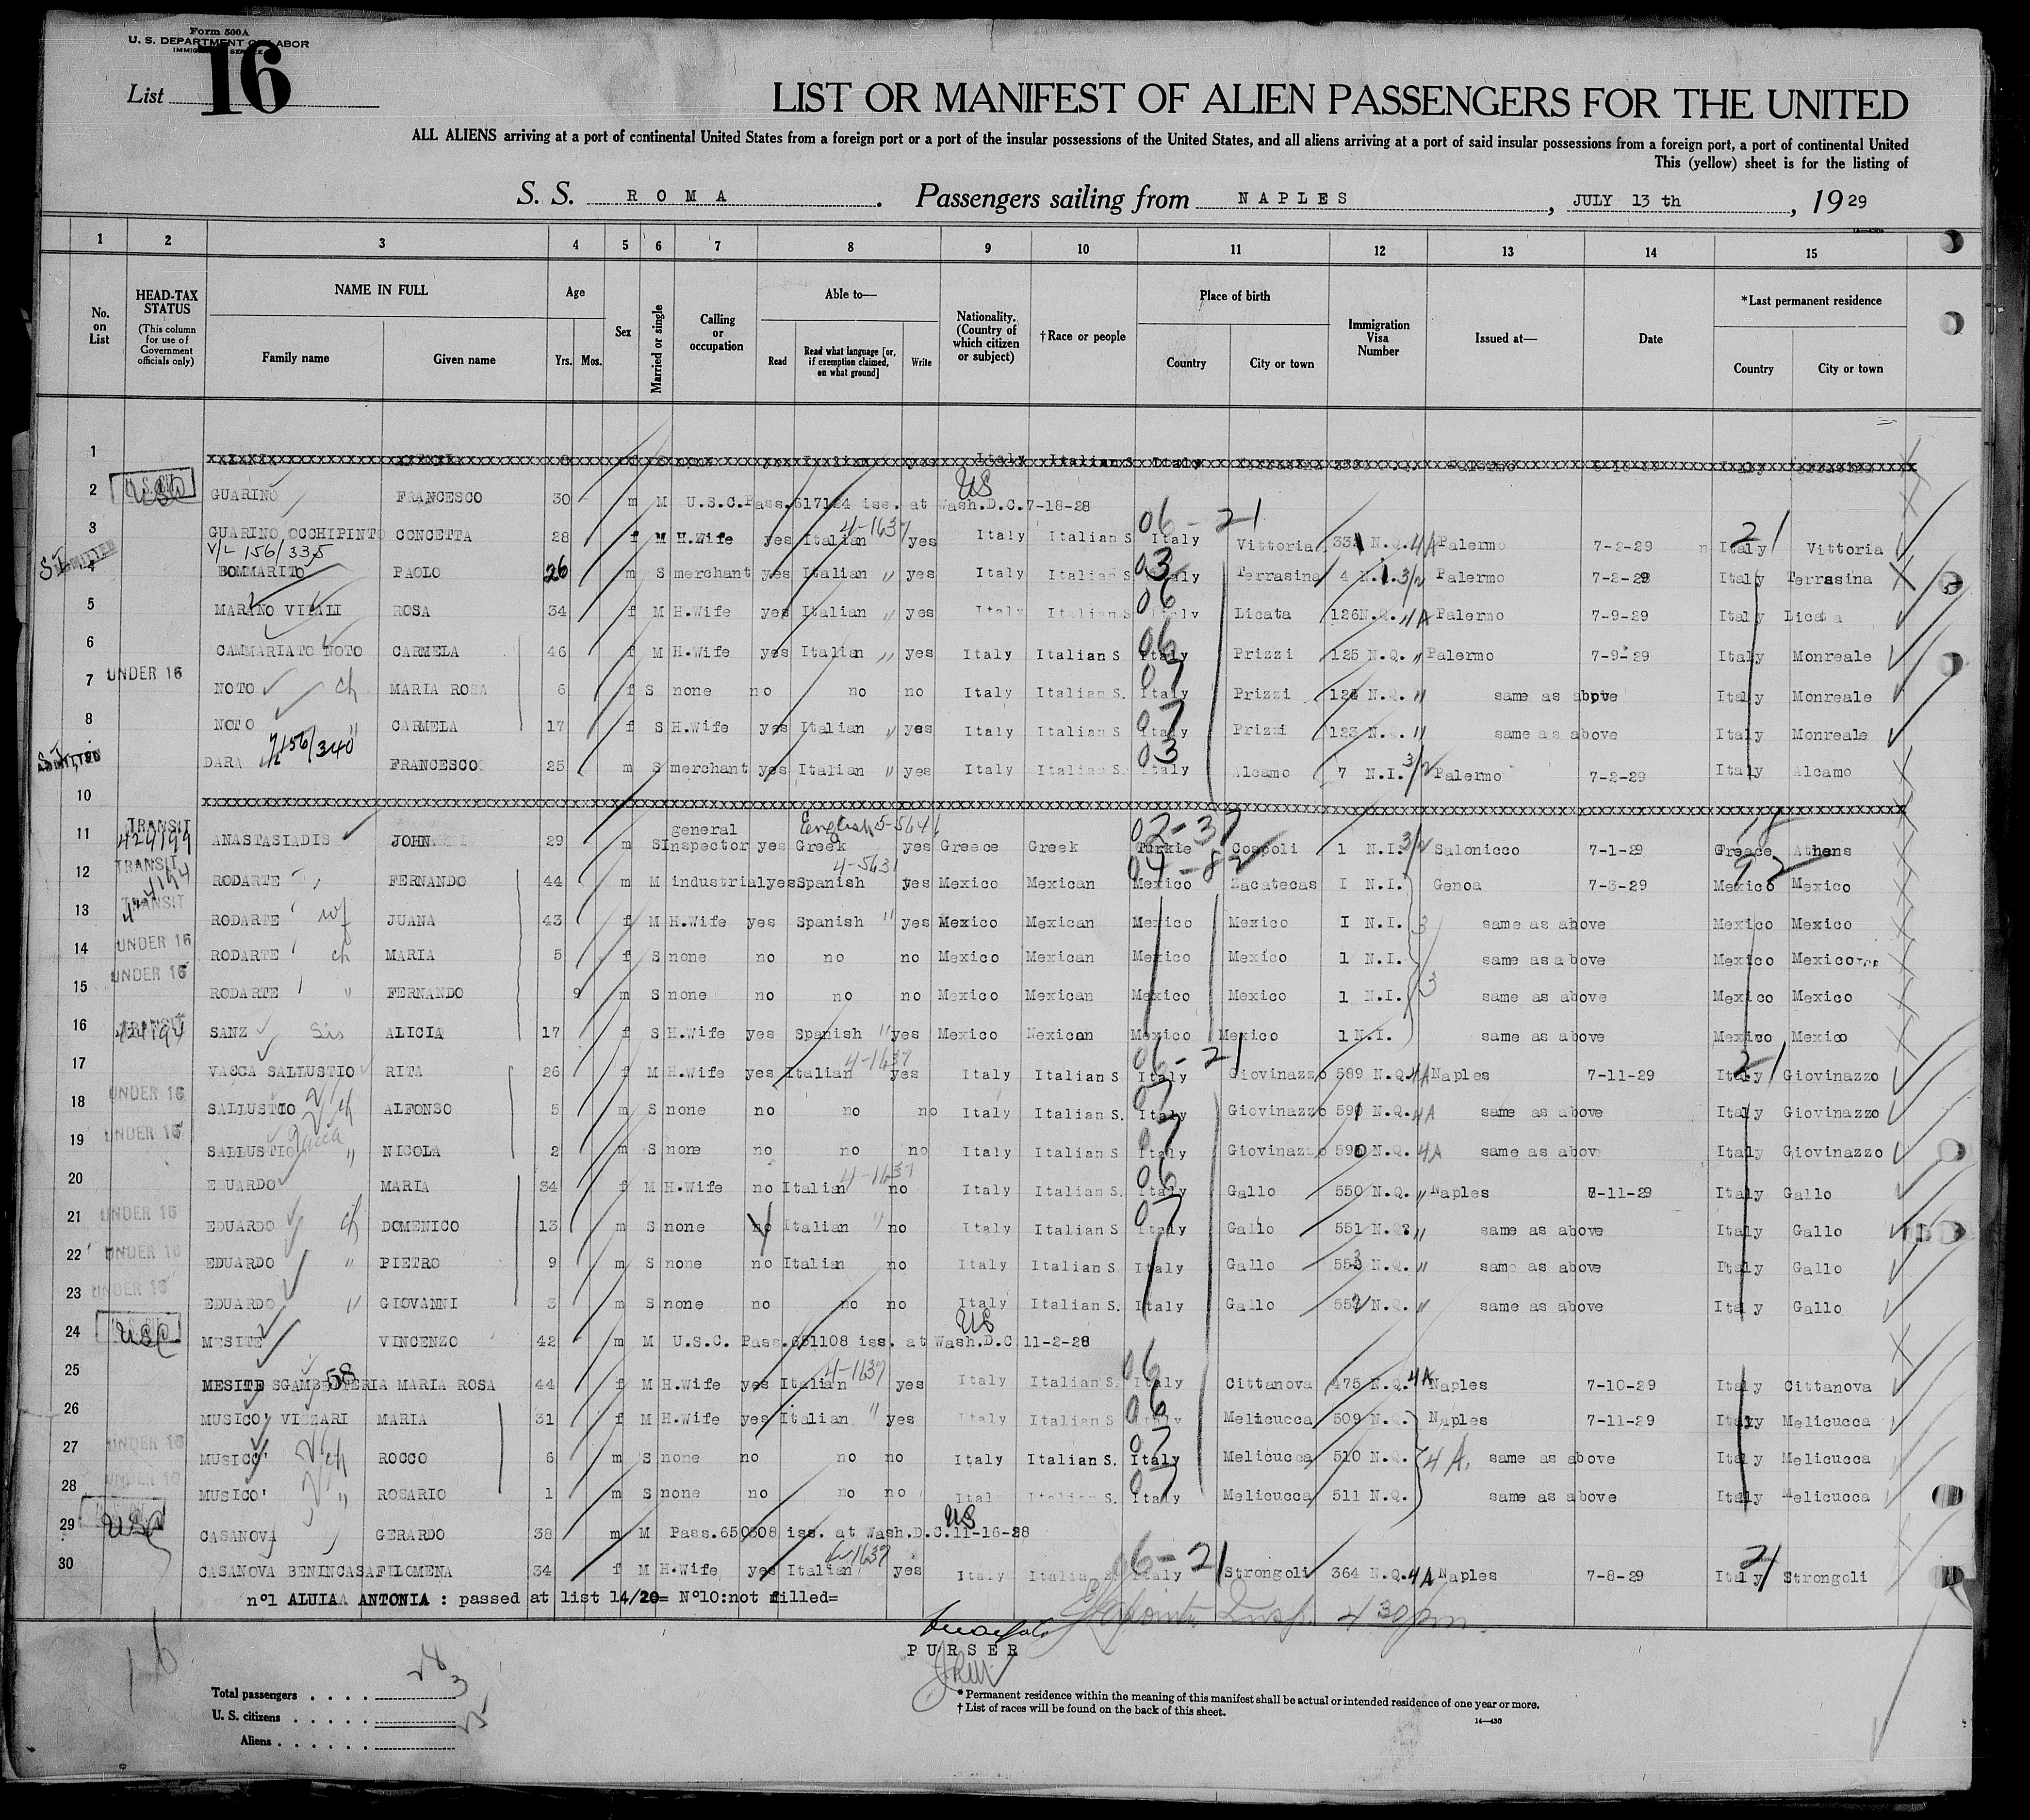 Form 500A
U. S. DEPARTMENT OF LABOR
IMMIGRATION SERVICE
List 16
LIST OR MANIFEST OF ALIEN PASSENGERS FOR THE UNITED
ALL ALIENS arriving at a port of continental United States from a foreign port or a port of the insular possessions of the United States, and all aliens arriving at a port of said insular possessions from a foreign port, a port of continental United
This (yellow) sheet is for the listing of
S. S. ROMA. Passengers sailing from NAPLES, JULY 13 th, 1929
1 2 3 4 5 6 7 8 9 10 11 12 13 14 15
No. on List
HEAD-TAX STATUS (This column for use of Government officials only)
NAME IN FULL
Family name Given name
Age
Yrs. Mos.
Sex
Married or single
Calling or occupation
Able to—
Read Read what language [or, if exemption claimed, on what ground] Write
Nationality. (Country of which citizen or subject)
†Race or people
Place of birth
Country City or town
Immigration Visa Number
Issued at—
Date
*Last permanent residence
Country City or town
1
2 USC GUARINO FRANCESCO 30 m M U.S.C.Pass.617124 iss. at Wash.D.C.7-18-28 US
3 GUARINO OCCHIPINTO CONCETTA 28 f M H.Wife yes Italian 4-1637 yes Italy Italian S Italy 06-21 Vittoria 331 N.Q. 4A Palermo 7-2-29 Italy 21 Vittoria
V/L 156/335
4 BOMMARITO PAOLO 26 m S merchant yes Italian " yes Italy Italian S 03 Italy Terrasina 4 N.I. 3/2 Palermo 7-2-29 Italy Terrasina
5 MARANO VITALI ROSA 34 f M H.Wife yes Italian " yes Italy Italian S 06 Italy Licata 126N.Q. 4A Palermo 7-9-29 Italy Licata
6 CAMMARIATO NOTO CARMELA 46 f M H.Wife yes Italian " yes Italy Italian S 06 Italy Prizzi 125 N.Q. " Palermo 7-9-29 Italy Monreale
7 UNDER 16 NOTO ch MARIA ROSA 6 f S none no no no Italy Italian S. 07 Italy Prizzi 124 N.Q. " same as above Italy Monreale
8 NOTO " CARMELA 17 f S H.Wife yes Italian " yes Italy Italian S 07 Italy Prizzi 123 N.Q. " same as above Italy Monreale
ADMITTED DARA V/L 156/340 FRANCESCO 25 m S merchant yes Italian " yes Italy Italian S. 03 Italy Alcamo 7 N.I. 3/2 Palermo 7-2-29 Italy Alcamo
10
11 TRANSIT ANASTASIADIS JOHN 29 m S general Inspector yes English 5-5641 Greek yes Greece Greek 02-37 Turkie Cospoli 1 N.I. 3/2 Salonicco 7-1-29 Greece Athens
12 TRANSIT RODARTE FERNANDO 44 m M industrial yes Spanish 4-5631 yes Mexico Mexican 04-82 Mexico Zacatecas I N.I. Genoa 7-3-29 Mexico Mexico
13 TRANSIT RODARTE wf JUANA 43 f M H.Wife yes Spanish " yes Mexico Mexican Mexico Mexico I N.I. 3 same as above Mexico Mexico
14 UNDER 16 RODARTE ch MARIA 5 f S none no no no Mexico Mexican Mexico Mexico 1 N.I. same as above Mexico Mexico
15 UNDER 16 RODARTE " FERNANDO 9 m S none no no no Mexico Mexican Mexico Mexico 1 N.I. 3 same as above Mexico Mexico
16 TRANSIT SANZ Sis ALICIA 17 f S H.Wife yes Spanish " yes Mexico Nexican Mexico Mexico 1 N.I. same as above Mexico Mexico
17 VACCA SALLUSTIO RITA 26 f M H.Wife yes Italian 4-1637 yes Italy Italian S 06-21 Italy Giovinazzo 589 N.Q. 4A Naples 7-11-29 Italy 21 Giovinazzo
18 UNDER 16 SALLUSTIO ch ALFONSO 5 m S none no no no Italy Italian S. 07 Italy Giovinazzo 591 N.Q. 4A same as above Italy Giovinazzo
19 UNDER 16 SALLUSTIO Vacca " NICOLA 2 m S none no no no Italy Italian S 07 Italy Giovinazzo 590 N.Q. 4A same as above Italy Giovinazzo
20 EDUARDO MARIA 34 f M H.Wife no Italian 4-1637 no Italy Italian S. 06 Italy Gallo 550 N.Q. " Naples 7-11-29 Italy Gallo
21 UNDER 16 EDUARDO ch DOMENICO 13 m S none no Italian " no Italy Italian S 07 Italy Gallo 551 N.Q. " same as above Italy Gallo
22 UNDER 16 EDUARDO " PIETRO 9 m S none no Italian no Italy Italian S Italy Gallo 553 N.Q. " same as above Italy Gallo
23 UNDER 16 EDUARDO " GIOVANNI 3 m S none no no no Italy Italian S. Italy Gallo 552 N.Q. " same as above Italy Gallo
24 USC MESITE VINCENZO 42 m M U.S.C. Pass.651108 iss. at Wash.D.C 11-2-28 US
25 MESITE SGAMBETERIA MARIA ROSA 58 44 f M H.Wife yes Italian 4-1637 yes Italy Italian S. 06 Italy Cittanova 475 N.Q. 4A Naples 7-10-29 Italy Cittanova
26 MUSICO' VIZZARI MARIA 31 f M H.Wife yes Italian " yes Italy Italian S 06 Italy Melicucca 509 N.Q. Naples 7-11-29 Italy Melicucca
27 UNDER 16 MUSICO' ch ROCCO 6 m S none no no no Italy Italian S. 07 Italy Melicucca 510 N.Q. 4A. same as above Italy Melicucca
28 UNDER 16 MUSICO' " ROSARIO 1 m S none no no no Italy Italian S. 07 Italy Melicucca 511 N.Q. same as above Italy Melicucca
29 USC CASANOVA GERARDO 38 m M Pass.650608 iss. at Wash.D.C.11-16-28 US
30 CASANOVA BENINCASA FILOMENA 34 f M H.Wife yes Italian 4-1637 yes Italy Italian 06-21 Italy Strongoli 364 N.Q. 4A Naples 7-8-29 Italy 21 Strongoli
n°1 ALUIA ANTONIA : passed at list 14/20= N°10:not filled=
Insp. 4 30 pm.
PURSER
16
Total passengers . . . . 28
U. S. citizens . . . . . 3
Aliens . . . . . . 25
*Permanent residence within the meaning of this manifest shall be actual or intended residence of one year or more.
†List of races will be found on the back of this sheet.
14—430